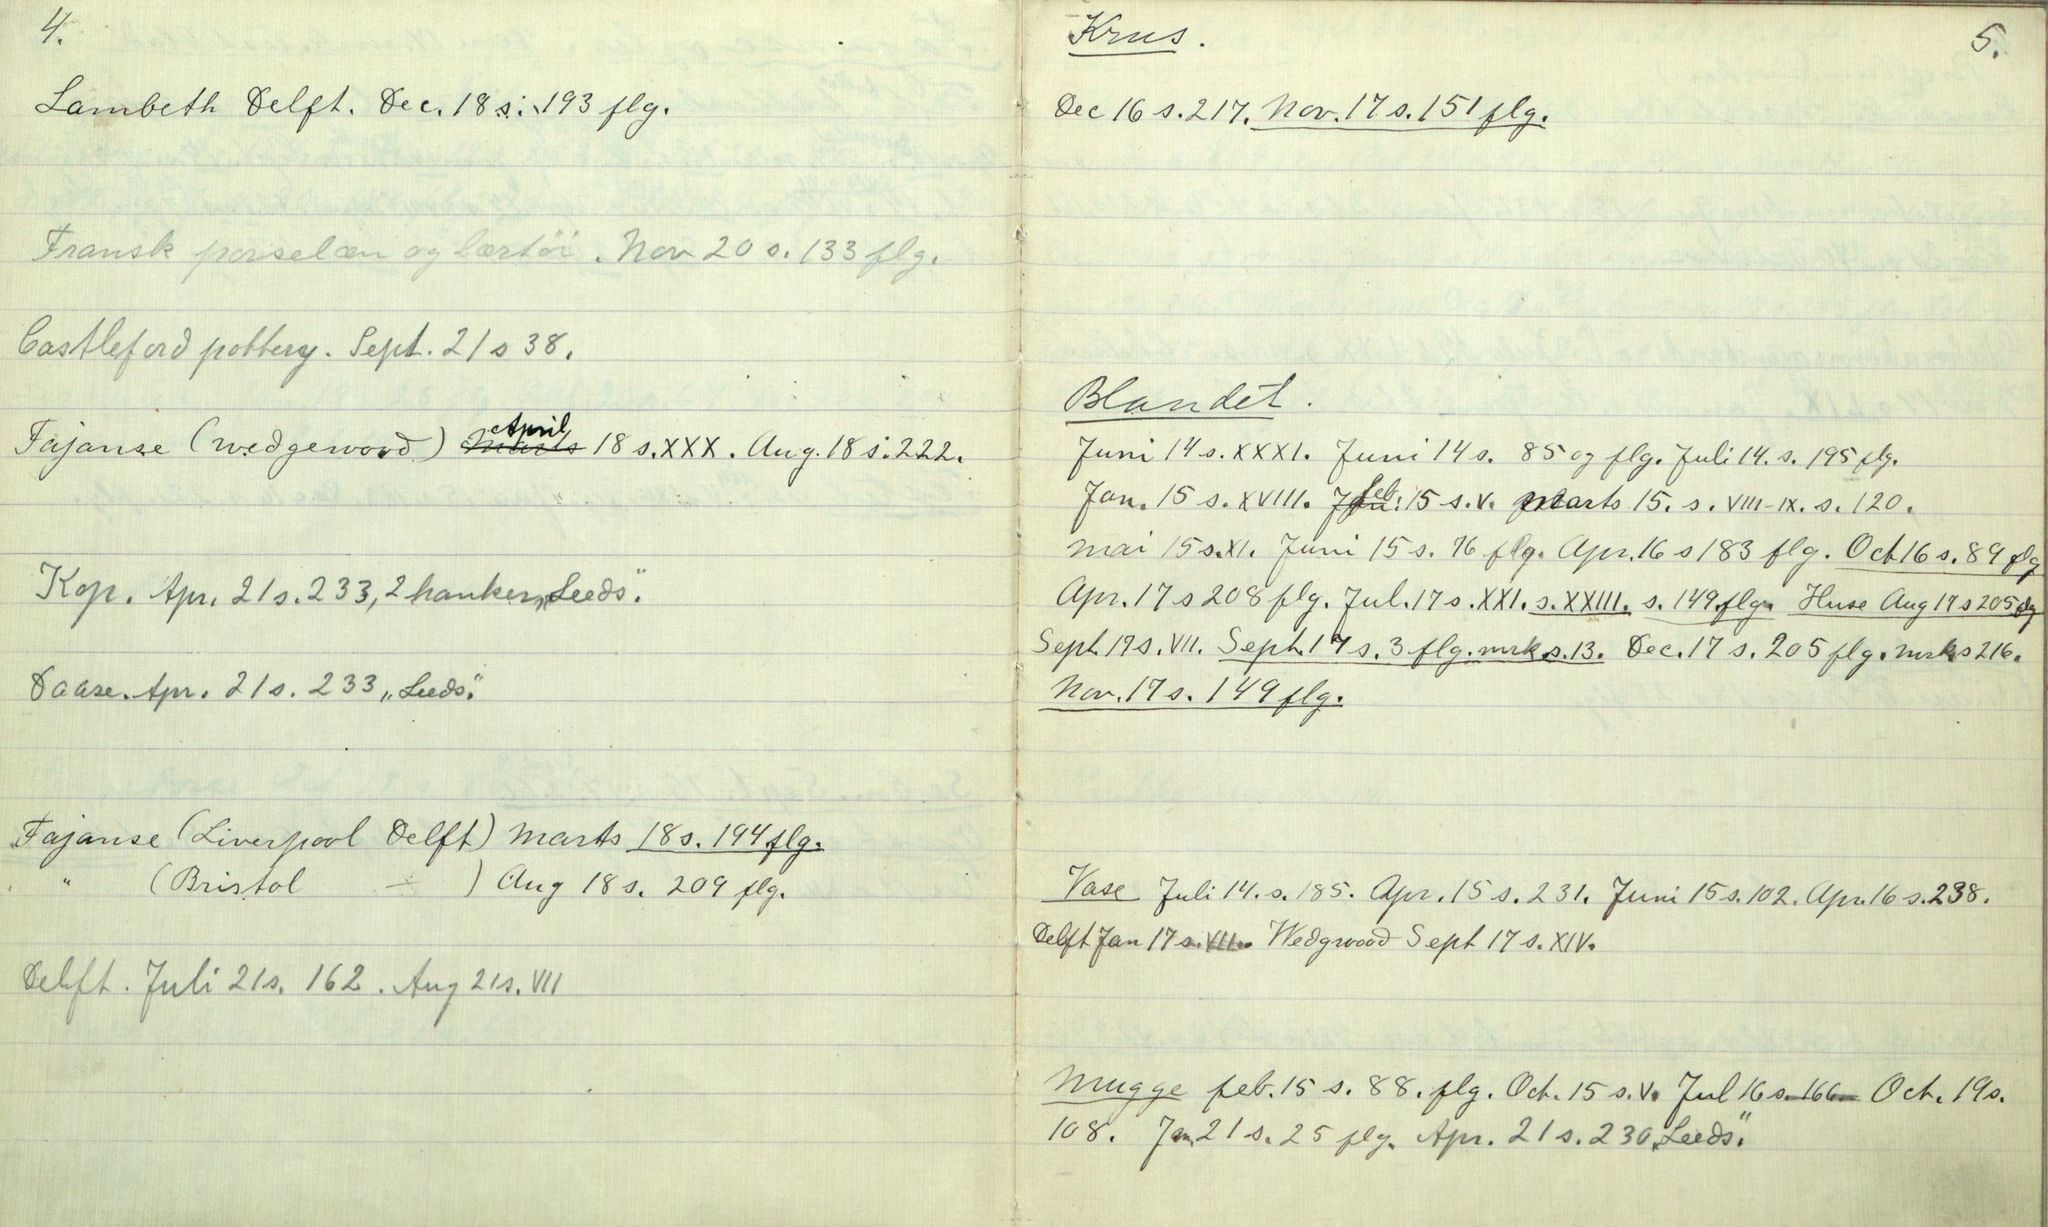 4.
Lambeth Delft. Dec. 18 s. 193 flg.
Fransk porselæn og lærtöi. Nov 20 s. 133 flg.
Castleford pottery. Sept. 21 s 38.
April
Fajanse (Wedgewood) Marts 18 s. XXX. Aug. 18 s. 222.
Kop. Apr. 21 s. 233, 2 hanker, "Leeds".
Daase. Apr. 21 s. 233 "Leeds".
Fajanse (Liverpool Delft) Marts 18 s. 194 flg.
" (Bristol ÷ ) Aug 18 s. 209 flg.
Delft. Juli 21 s. 162. Aug 21 s. VII
5.
Krus.
Dec 16 s. 217. Nov. 17 s. 151 flg.
Blandet.
Juni 14 s. XXXI. Juni 14 s. 85 og flg. Juli 14. s. 195 flg.
Jan. 15 s. XVIII. feb. 15 s. V. Marts 15. s. VIII-IX. s. 120.
Mai 15 s. XI. Juni 15 s. 76 flg. Apr. 16 s 183 flg. Oct 16 s. 89 flg
Apr. 17 s 208 flg. Jul. 17 s. XXI. s. XXIII. s. 149 flg. Huse Aug 17 s 205 flg
Sept. 17 s. VII. Sept. 17 s. 3 flg. mrk s. 13. Dec. 17 s. 205 flg. mrk s 216.
Nov. 17 s. 149 flg.
Vase Juli 14. s. 185. Apr. 15 s. 231. Juni 15 s. 102. Apr. 16 s. 238.
Delft Jan 17 s. VII. Wedgwood Sept 17 s. XIV.
Mugge feb. 15 s. 88. flg. Oct. 15 s. V. Jul 16 s. 166 Oct. 19 s.
108. Jan. 21 s. 25 flg. Apr. 21 s. 230 "Leeds".